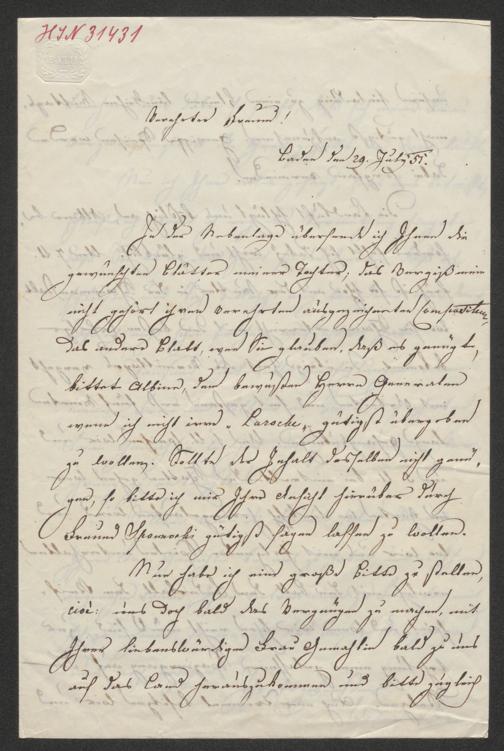 HIN 31431
Verehrter Freund!
Baden den 29. July 51.
In der Nebenlage übersende ich Ihnen die
gewünschten Blätter meiner Tochter, das Vergißmein
nicht gehört ihren verehrten ausgezeichneten Compositeur,
das andere Blatt, wen Sie glauben, daß es genügt,
bittet Albine, den bewußten Herrn Generalen
wenn ich nicht irre „Laroche„ gütigst übergeben
zu wollen. Sollte der Inhalt desselben nicht genü,
gen, so bitte ich mir Ihre Ansicht hierüber durch
Freund gütigst sagen lassen zu wollen.
Nun habe ich eine große Bitte zu stellen,
cioè: uns doch bald das Vergnügen zu machen, mit
Ihrer liebenswürdigen Frau Gemahlin bald zu uns
auf das Land herauszukommen und bitte zugleich